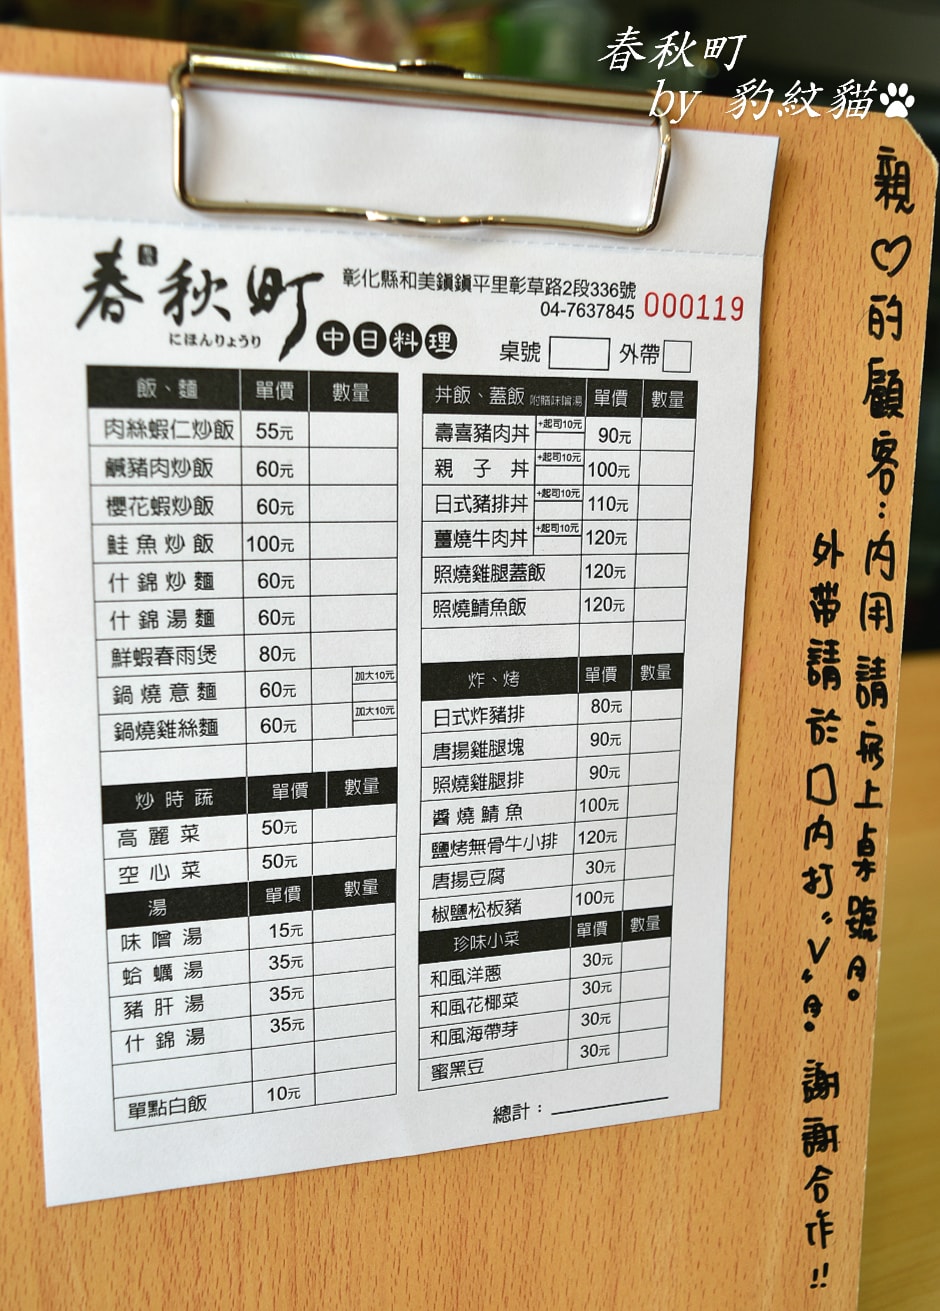 春秋町
by 豹紋貓
春秋町
にほんりょうり
中日料理
彰化縣和美鎮鎮平里彰草路2段336號
04-7637845
000119
桌號 外帶
飯、麵 單價 數量
肉絲蝦仁炒飯 55元
鹹豬肉炒飯 60元
櫻花蝦炒飯 60元
鮭魚炒飯 100元
什錦炒麵 60元
什錦湯麵 60元
鮮蝦春雨煲 80元
鍋燒意麵 60元 加大10元
鍋燒雞絲麵 60元 加大10元
炒時蔬 單價 數量
高麗菜 50元
空心菜 50元
湯 單價 數量
味噌湯 15元
蛤蠣湯 35元
豬肝湯 35元
什錦湯 35元
單點白飯 10元
丼飯、蓋飯 附贈味噌湯 單價 數量
壽喜豬肉丼 +起司10元 90元
親子丼 +起司10元 100元
日式豬排丼 +起司10元 110元
薑燒牛肉丼 +起司10元 120元
照燒雞腿蓋飯 120元
照燒鯖魚飯 120元
炸、烤 單價 數量
日式炸豬排 80元
唐揚雞腿塊 90元
照燒雞腿排 90元
醬燒鯖魚 100元
鹽烤無骨牛小排 120元
唐揚豆腐 30元
椒鹽松板豬 100元
珍味小菜 單價 數量
和風洋蔥 30元
和風花椰菜 30元
和風海帶芽 30元
蜜黑豆 30元
總計：
親♡的顧客：內用請寫上桌號。
外帶請於口內打"V"。謝謝合作!!